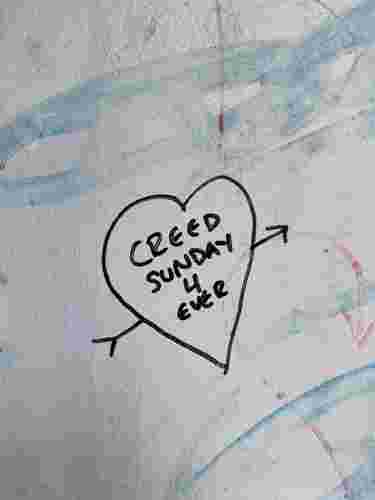 CREED
SUNDAY
4
EVER